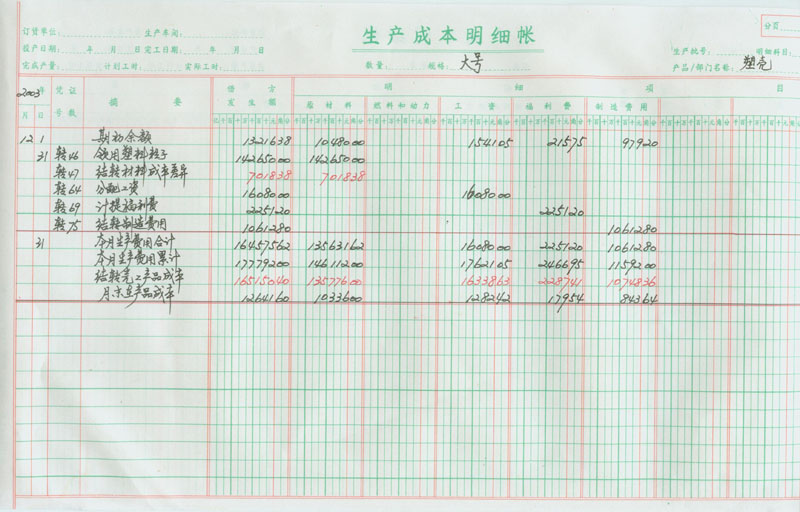 生产成本明细帐
分页
订货单位: 生产车间:
投产日期: 年 月 日 完工日期: 年 月 日
生产批号: 明细科目:
完成产量: 计划工时: 实际工时: 数量: 规格: 大号 产品/部门名称: 塑壳
2003年 凭证 摘要 借方 明细项目
月 日 号数 发生额 原材料 燃料和动力 工资 福利费 制造费用
12 1 期初余额 1321638 1048000 154105 21575 97920
31 转46 领用塑料粒子 14265000 14265000
转47 结转材料成本差异 701838 701838
转64 分配工资 1608000 1608000
转69 计提福利费 225120 225120
转75 结转制造费用 1061280 1061280
31 本月生产费用合计 16457562 13563162 1608000 225120 1061280
本月生产费用累计 17779200 14611200 1762105 246695 1159200
结转完工产品成本 16515040 13577600 1633863 228741 1074836
月末在产品成本 1264160 1033600 128242 17954 84364